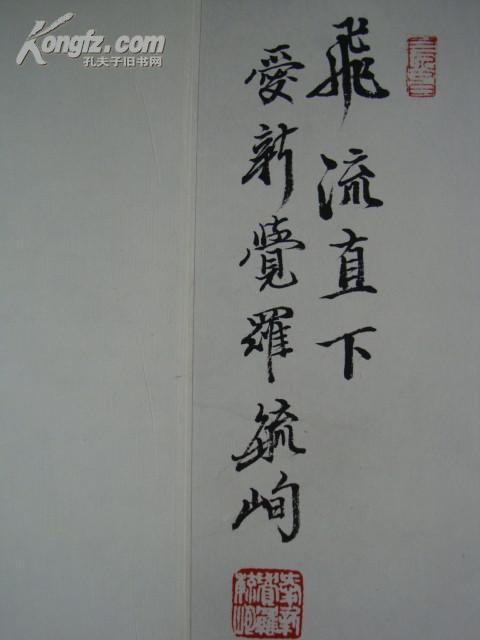 飛流直下
愛新覺羅毓峋
Kongfz.com
孔夫子旧书网